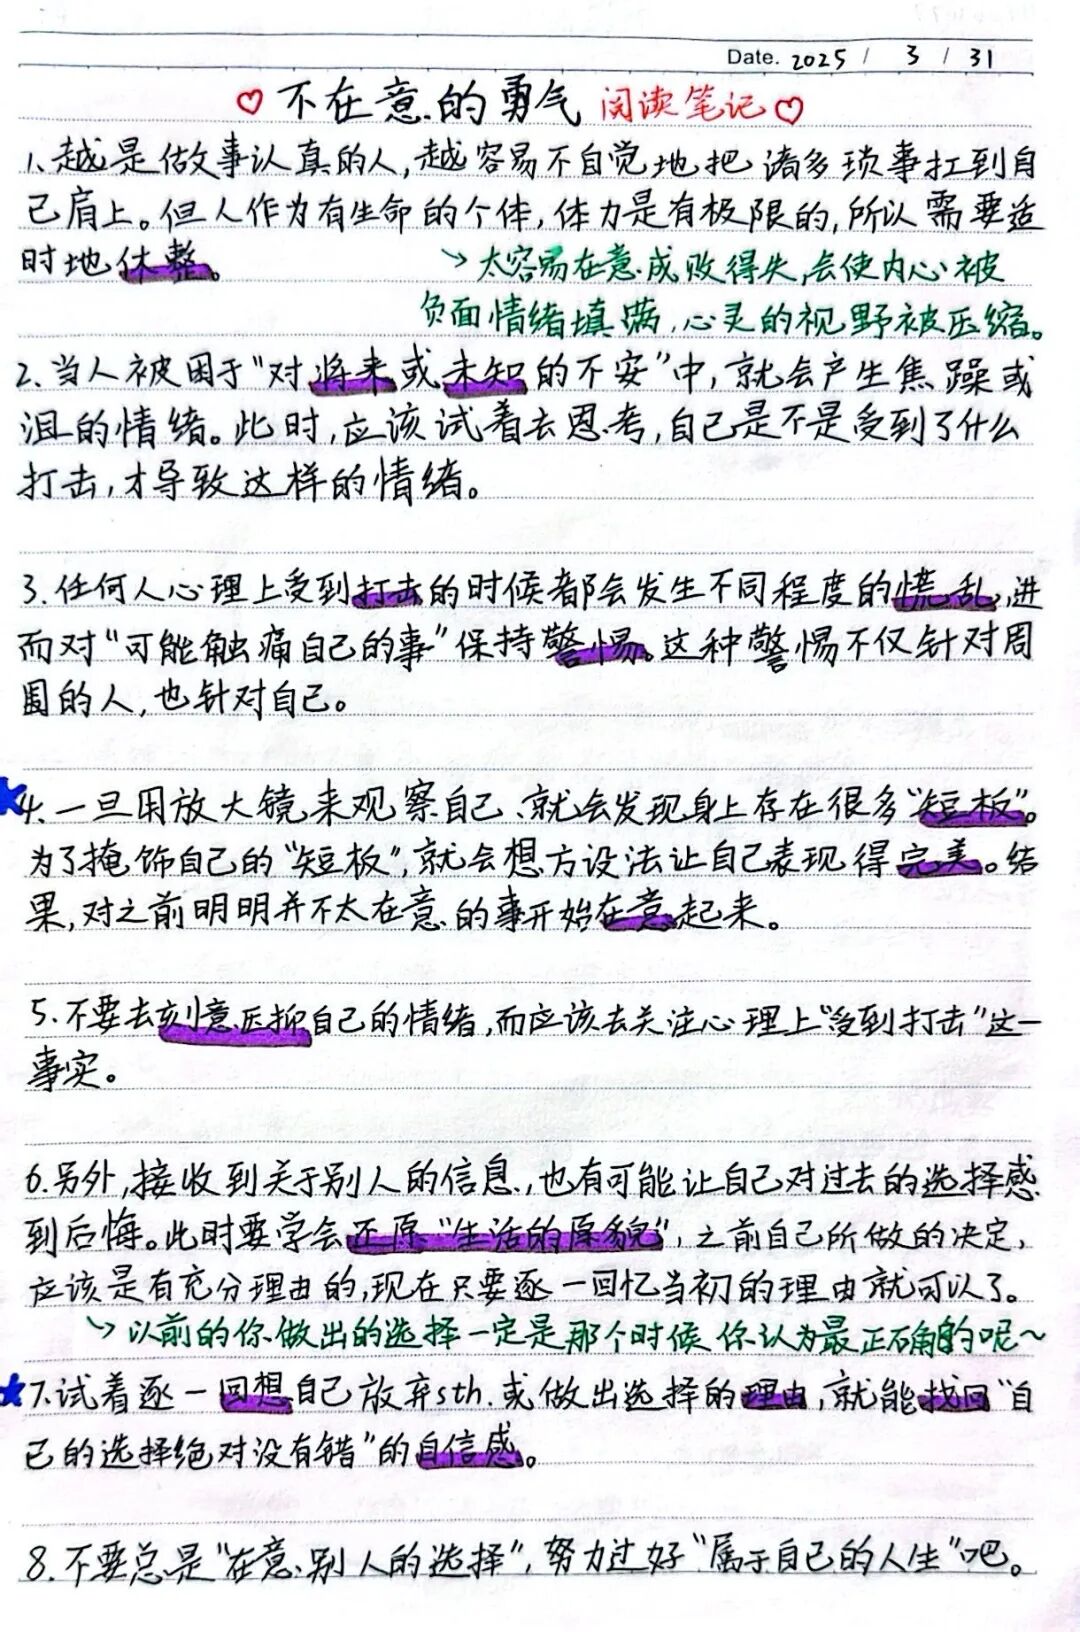 Date. 2025 / 3 / 31
♡ 不在意的勇气 阅读笔记♡
1、越是做事认真的人,越容易不自觉地把诸多琐事扛到自
己肩上。但人作为有生命的个体,体力是有极限的,所以需要适
时地休整。
↘太容易在意成败得失,会使内心被
负面情绪填满,心灵的视野被压缩。
2、当人被困于“对将来或未知的不安”中,就会产生焦躁或
沮的情绪。此时,应该试着去思考,自己是不是受到了什么
打击,才导致这样的情绪。
3.任何人心理上受到打击的时候都会发生不同程度的慌乱,进
而对“可能触痛自己的事”保持警惕。这种警惕不仅针对周
围的人,也针对自己。
★4、一旦用放大镜来观察自己、就会发现身上存在很多“短板”。
为了掩饰自己的“短板”,就会想方设法让自己表现得完美。结
果,对之前明明并不太在意的事开始在意起来。
5.不要去刻意压抑自己的情绪,而应该去关注心理上“受到打击”这一
事实。
6.另外,接收到关于别人的信息,也有可能让自己对过去的选择感
到后悔。此时要学会还原“生活的原貌”,之前自己所做的决定,
应该是有充分理由的,现在只要逐一回忆当初的理由就可以了。
↘以前的你做出的选择一定是那个时候你认为最正确的呢~
★7.试着逐一回想自己放弃sth.或做出选择的理由,就能找回“自
己的选择绝对没有错”的自信感。
8.不要总是“在意别人的选择”,努力过好“属于自己的人生”吧。